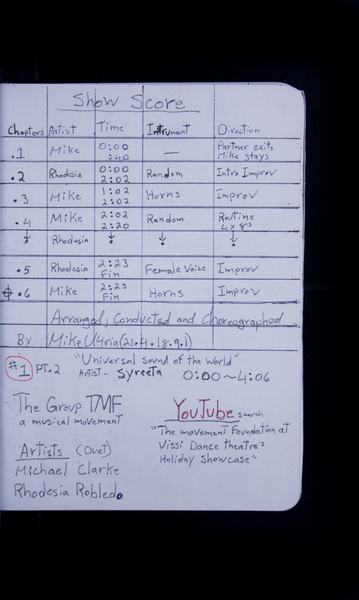 Show Score
Chapters Artist Time Intrument Direction
.1 Mike 0:00 :40 — Partner exits Mike stays
.2 Rhodesia 0:00 2:02 Random Intro Improv
.3 Mike 1:02 2:02 Horns Improv
.4 Mike 2:02 2:20 Random Routine 4x8's
Rhodesia
.5 Rhodesia 2:23 Fin Female Voice Improv
.6 Mike 2:23 Fin Horns Improv
Arranged, Conducted and Choreographed
By Mike U4ria (21.4.18.9.1)
#1 PT.2 "Universal Sound of the World"
Artist - Syreeta 0:00~4:06
The Group TMF
a musical movement
YouTube search
"The movement Foundation at
Vissi Dance theatre's
Holiday Showcase"
Artists (Duet)
Michael Clarke
Rhodesia Robledo